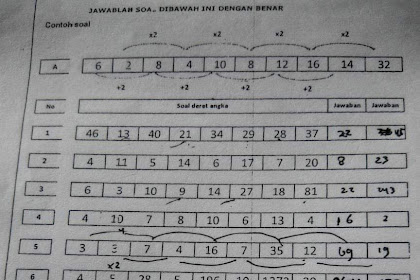 JAWABLAH SOAL DIBAWAH INI DENGAN BENAR
Contoh soal
x2 x2 x2 x2
A 6 2 8 4 10 8 12 16 14 32
+2 +2 +2 +2
No Soal deret angka Jawaban Jawaban
1 46 13 40 21 34 29 28 37 22 45
2 4 11 5 14 6 17 7 20 8 23
3 6 3 10 9 14 27 18 81 22 243
4 4 10 7 8 10 6 13 4 16 2
5 3 3 7 4 16 7 35 12 69 19
x2